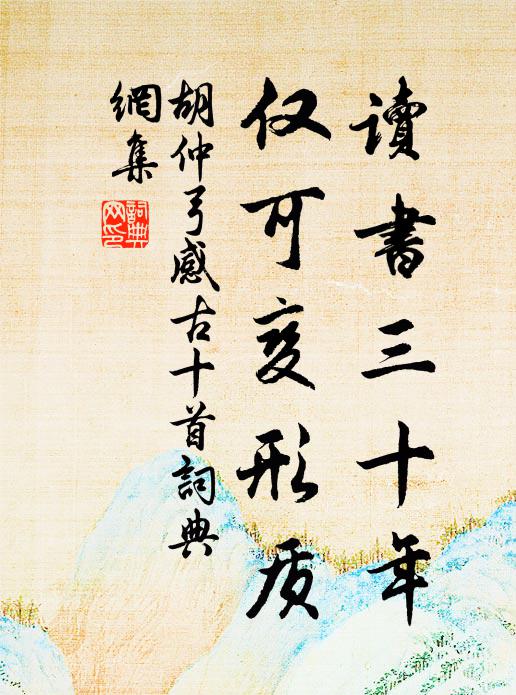 讀書三十年
仅可变形质
胡仲弓感古十首詞典
網集
詞典
网印